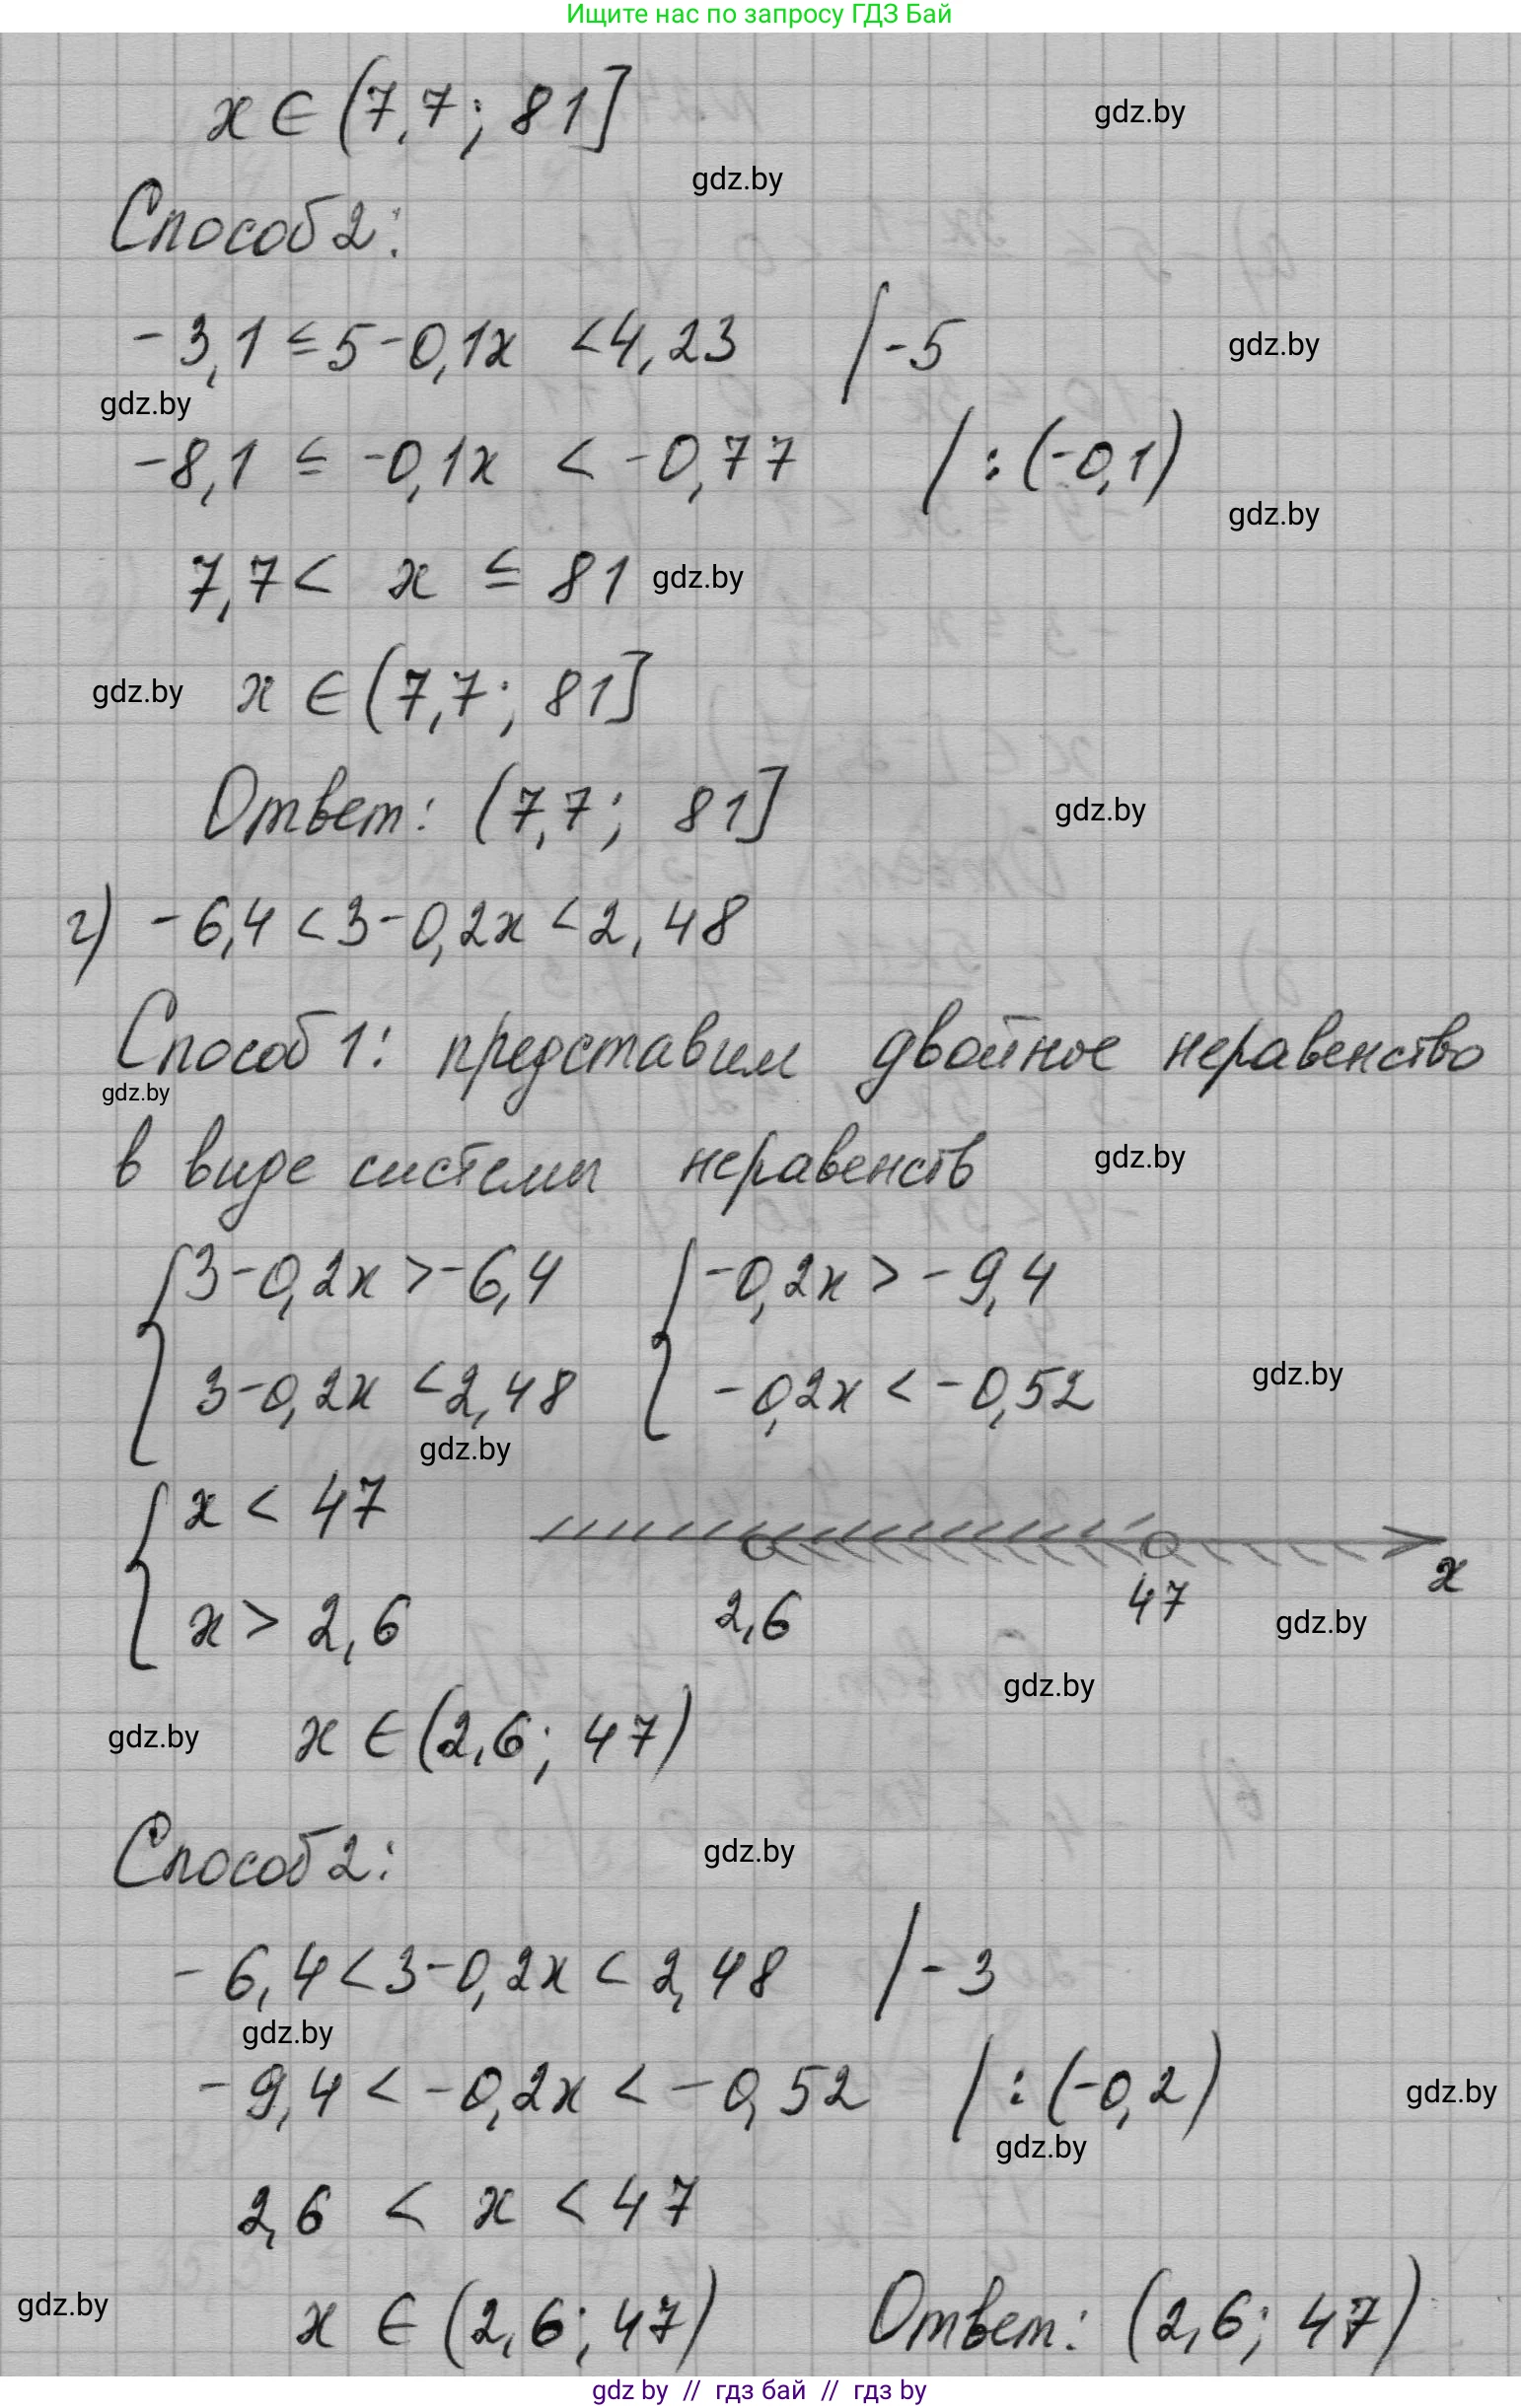 Ищите нас по запросу ГДЗ Бай
x ∈ (7,7; 81]
gdz.by
gdz.by
Способ 2:
-3,1 ≤ 5-0,1x < 4,23 / -5
gdz.by
gdz.by
-8,1 ≤ -0,1x < -0,77 / :(-0,1)
gdz.by
7,7 < x ≤ 81
gdz.by
gdz.by
x ∈ (7,7; 81]
Ответ: (7,7; 81]
gdz.by
г) -6,4 < 3-0,2x < 2,48
Способ 1: представим двойное неравенство
gdz.by
в виде системы неравенств
gdz.by
{3-0,2x > -6,4 {-0,2x > -9,4
3-0,2x < 2,48 -0,2x < -0,52
gdz.by
gdz.by
{x < 47
x > 2,6
2,6 47 x
gdz.by
gdz.by
gdz.by
x ∈ (2,6; 47)
Способ 2:
gdz.by
-6,4 < 3-0,2x < 2,48 / -3
gdz.by
-9,4 < -0,2x < -0,52 / :(-0,2)
gdz.by
gdz.by
2,6 < x < 47
gdz.by
x ∈ (2,6; 47) Ответ: (2,6; 47)
gdz by // гдз бай // гдз by